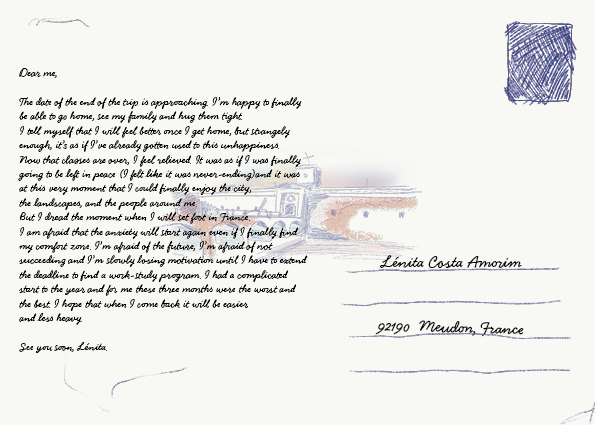 Dear me,
The date of the end of the trip is approaching. I'm happy to finally
be able to go home, see my family and hug them tight.
I tell myself that I will feel better once I get home, but strangely
enough, it's as if I've already gotten used to this unhappiness.
Now that classes are over, I feel relieved. It was as if I was finally
going to be left in peace (I felt like it was never-ending)and it was
at this very moment that I could finally enjoy the city,
the landscapes, and the people around me.
But I dread the moment when I will set foot in France.
I am afraid that the anxiety will start again even if I finally find
my comfort zone. I'm afraid of the future, I'm afraid of not
succeeding and I'm slowly losing motivation until I have to extend
the deadline to find a work-study program. I had a complicated
start to the year and for me these three months were the worst and
the best. I hope that when I come back it will be easier
and less heavy.
See you soon, Lénita.
Lénita Costa Amorim
92190 Meudon, France